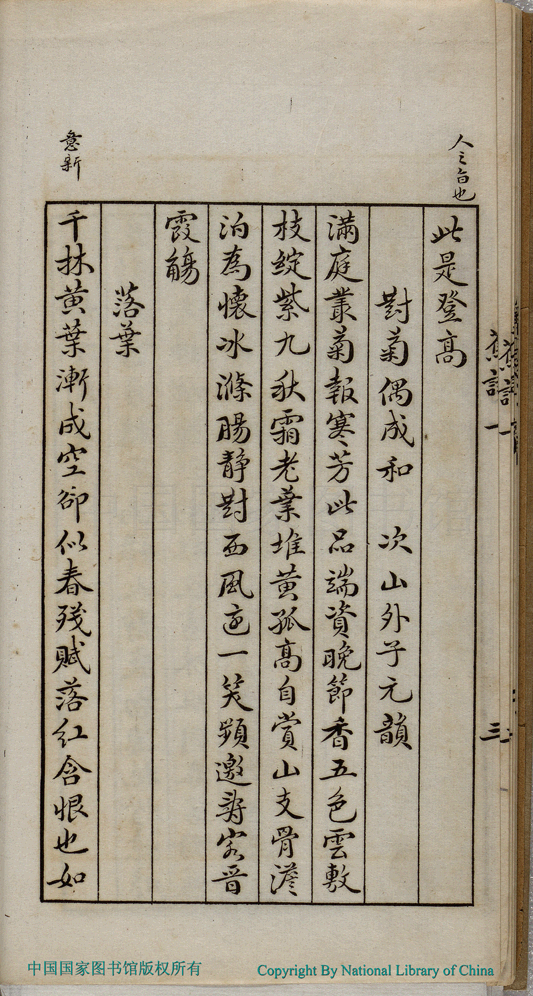 人之旨也
此是登高
對菊偶成和 次山外子元韻
滿庭叢菊報寒芳此品端資晚節香五色雲敷
枝綻紫九秋霜老葉堆黃孤高自賞山支骨澹
泊為懷冰滌腸靜對西風迎一笑頻邀壽客晉
霞觴
落葉
意新
千林黃葉漸成空卻似春殘賦落紅含恨也如
三
中国国家图书馆版权所有
Copyright By National Library of China